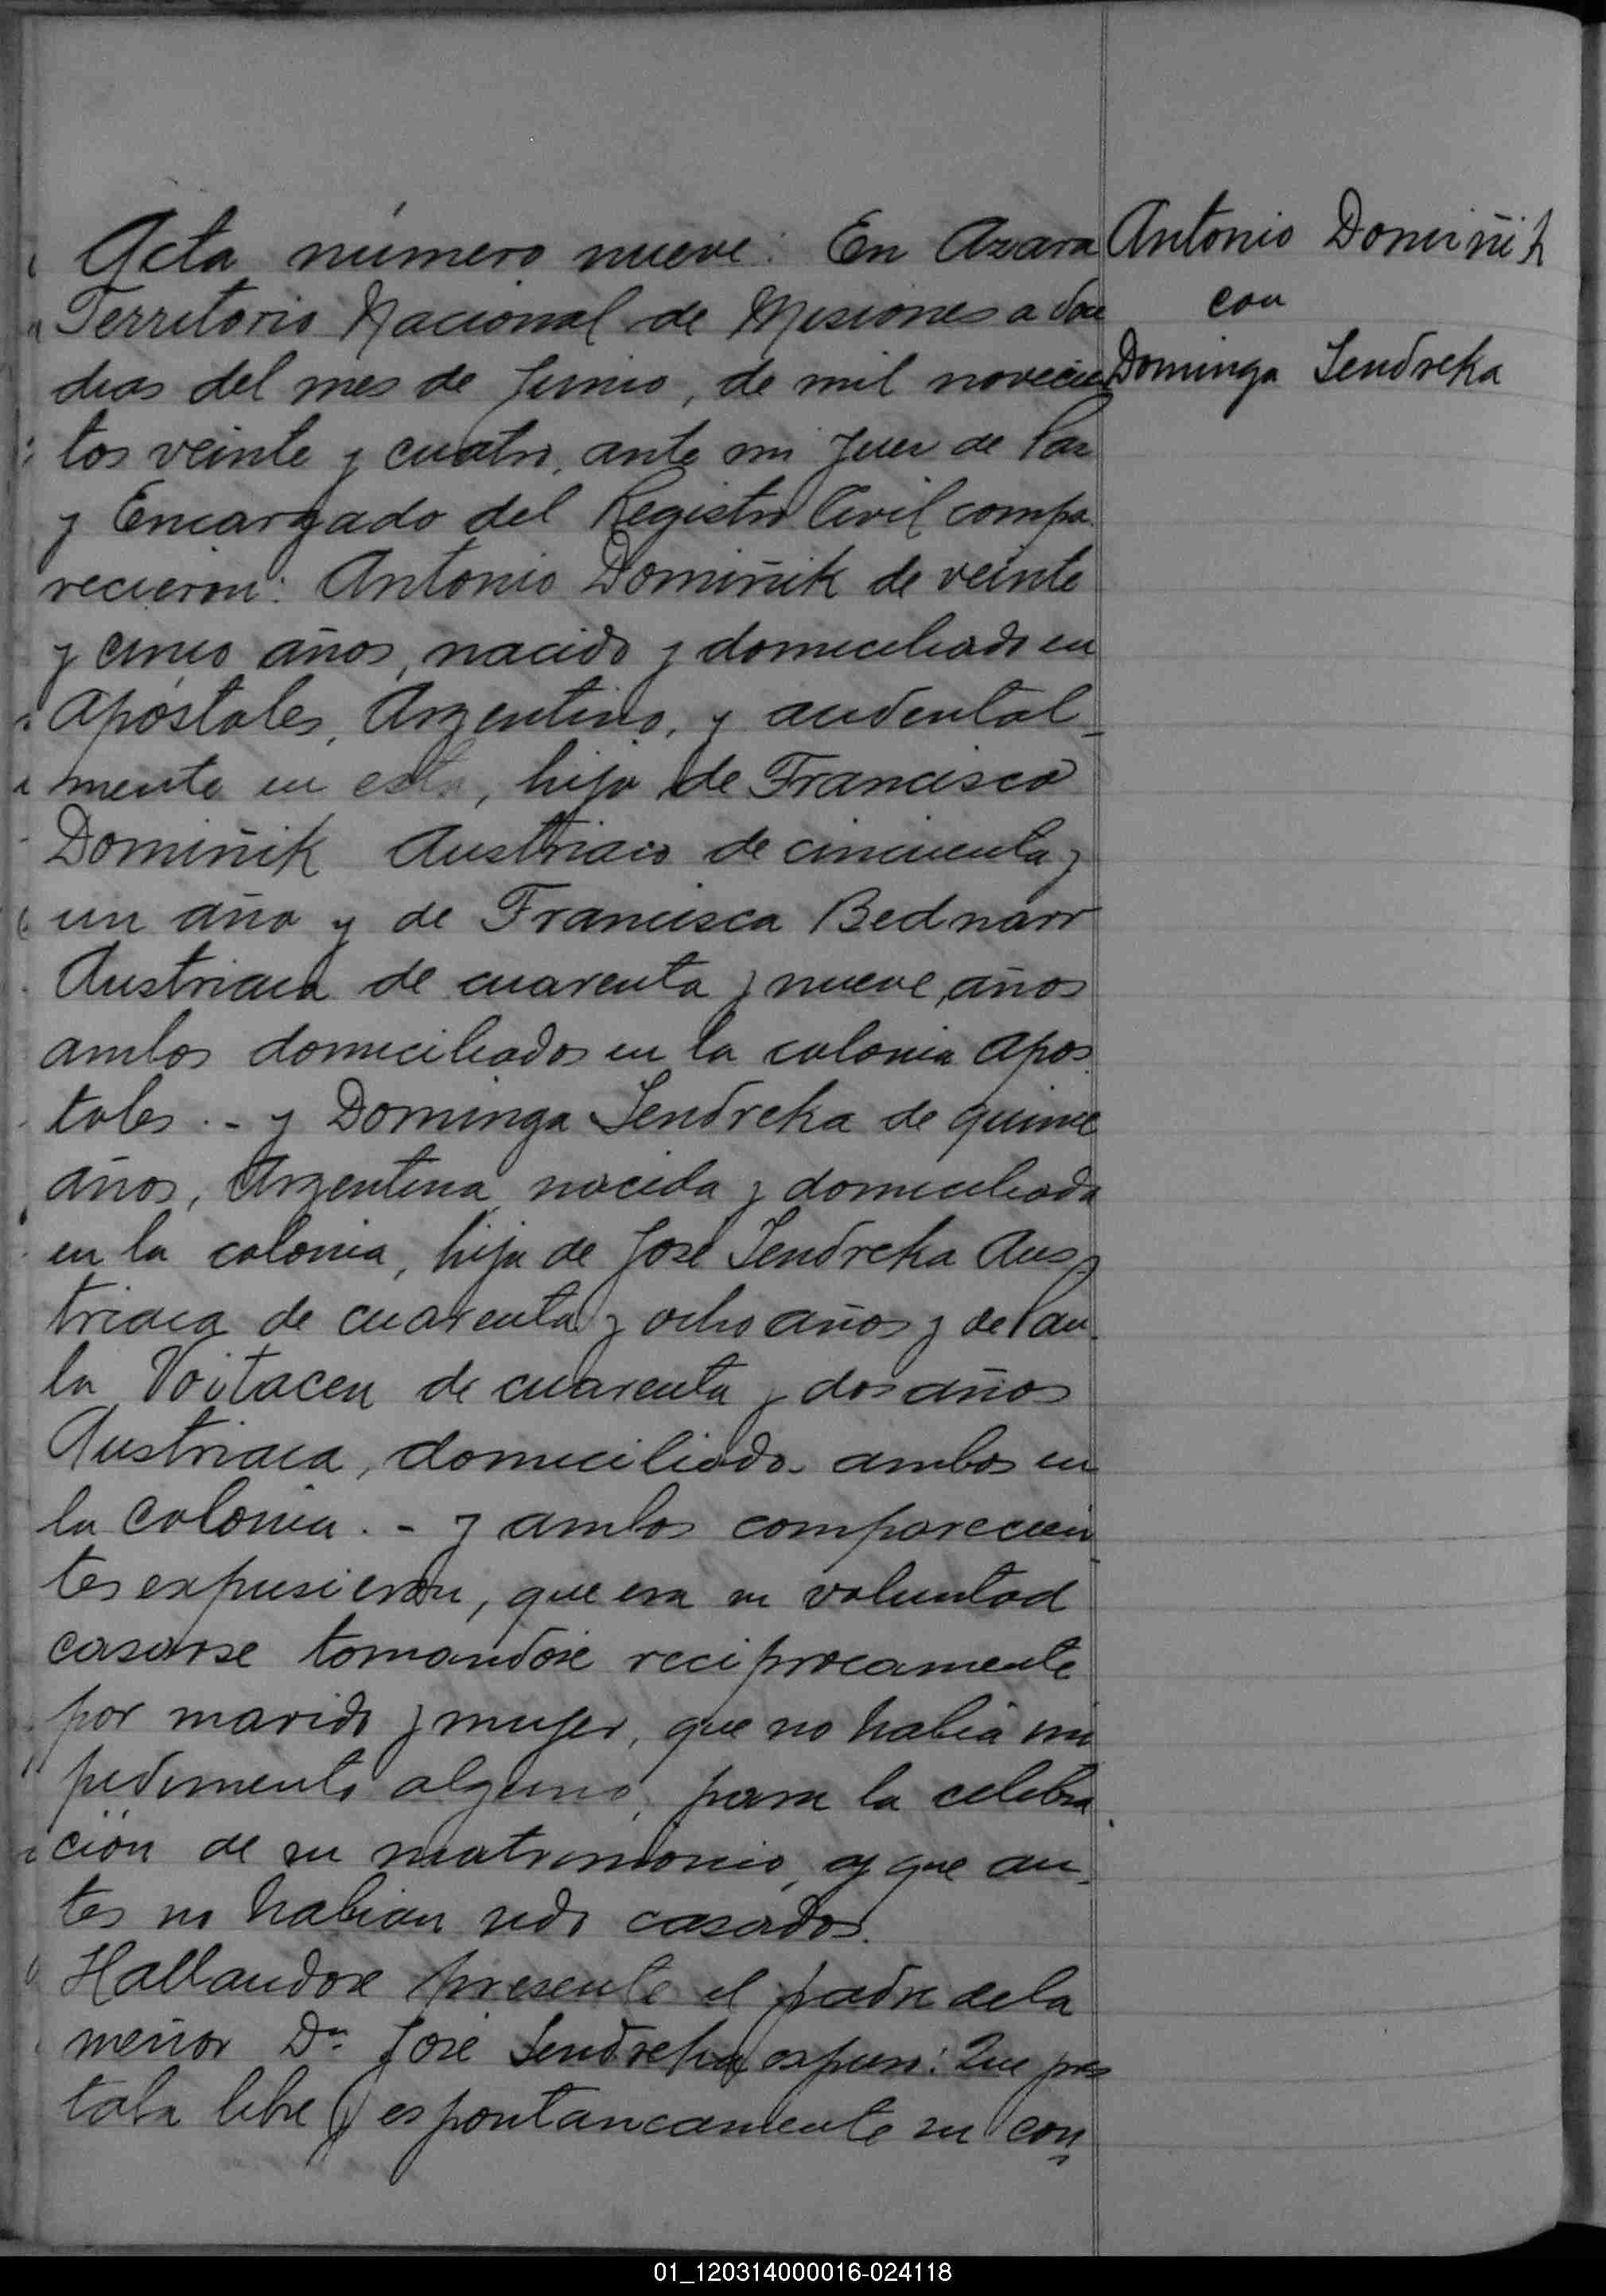 Acta número nueve: En Azara
Territorio Nacional de Misiones a doce
dias del mes de Junio, de mil novecien
tos veinte y cuatro, ante mi Juez de Paz
y Encargado del Registro Civil compa
recieron: Antonio Domiñik de veinte
y cinco años, nacido y domiciliado en
Apóstoles, Argentino, y accidental
mente en esta, hijo de Francisco
Domiñik Austriaco de cincuenta y
un año y de Francisca Bednarr
Austriaca de cuarenta y nueve años
ambos domiciliados en la colonia Apos
toles.- y Dominga Sendreka de quince
años, Argentina nacida y domiciliada
en la colonia, hija de José Sendreka Aus
triaca de cuarenta y ocho años y de Pau
la Voitacen de cuarenta y dos años
Austriaca, domiciliado ambos en
la Colonia.- y ambos comparecien
tes expusieron, que era su voluntad
casarse tomandose reciprocamente
por marido y mujer, que no habia im
pedimento alguno, para la celebra
ción de su matrimonio, y que an
tes no habian sido casados.
Hallandose presente el padre de la
menor Dn José Sendreka expuso: Que pres
taba libre y espontaneamente su con
Antonio Domiñik
con
Dominga Sendreka
01_120314000016-024118